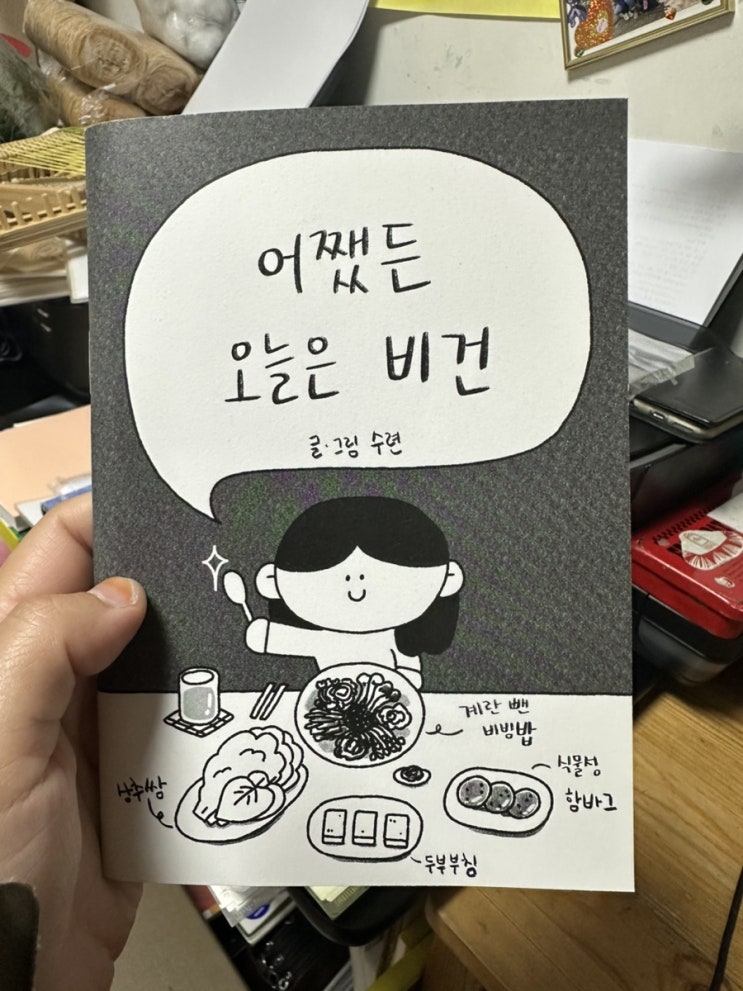 어쨌든
오늘은 비건
글·그림 수련
계란 뺀
비빔밥
식물성
함바그
상추쌈
두부부침